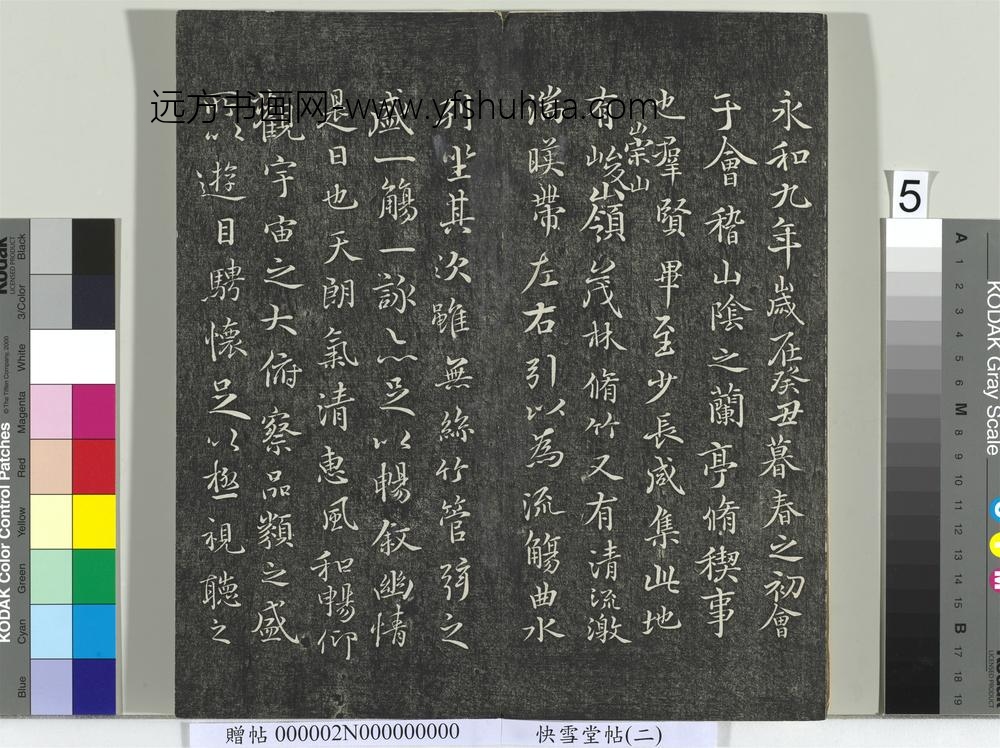 永和九年歲在癸丑暮春之初會
于會稽山陰之蘭亭脩稧事
也羣賢畢至少長咸集此地
有崇山峻領茂林脩竹又有清流激
湍暎帶左右引以為流觴曲水
列坐其次雖無絲竹管弦之
盛一觴一詠亦足以暢敘幽情
是日也天朗氣清惠風和暢仰
觀宇宙之大俯察品類之盛
所以遊目騁懷足以極視聽之
远方书画网-www.yfshuhua.com
5
贈帖 000002N000000000
快雪堂帖(二)
KODAK Color Control Patches
© The Tiffen Company, 2000
Kodak
LICENSED PRODUCT
Blue
Cyan
Green
Yellow
Red
Magenta
White
3/Color
Black
KODAK Gray Scale
A
1
2
3
4
5
6
M
8
9
10
11
12
13
14
15
B
17
18
19